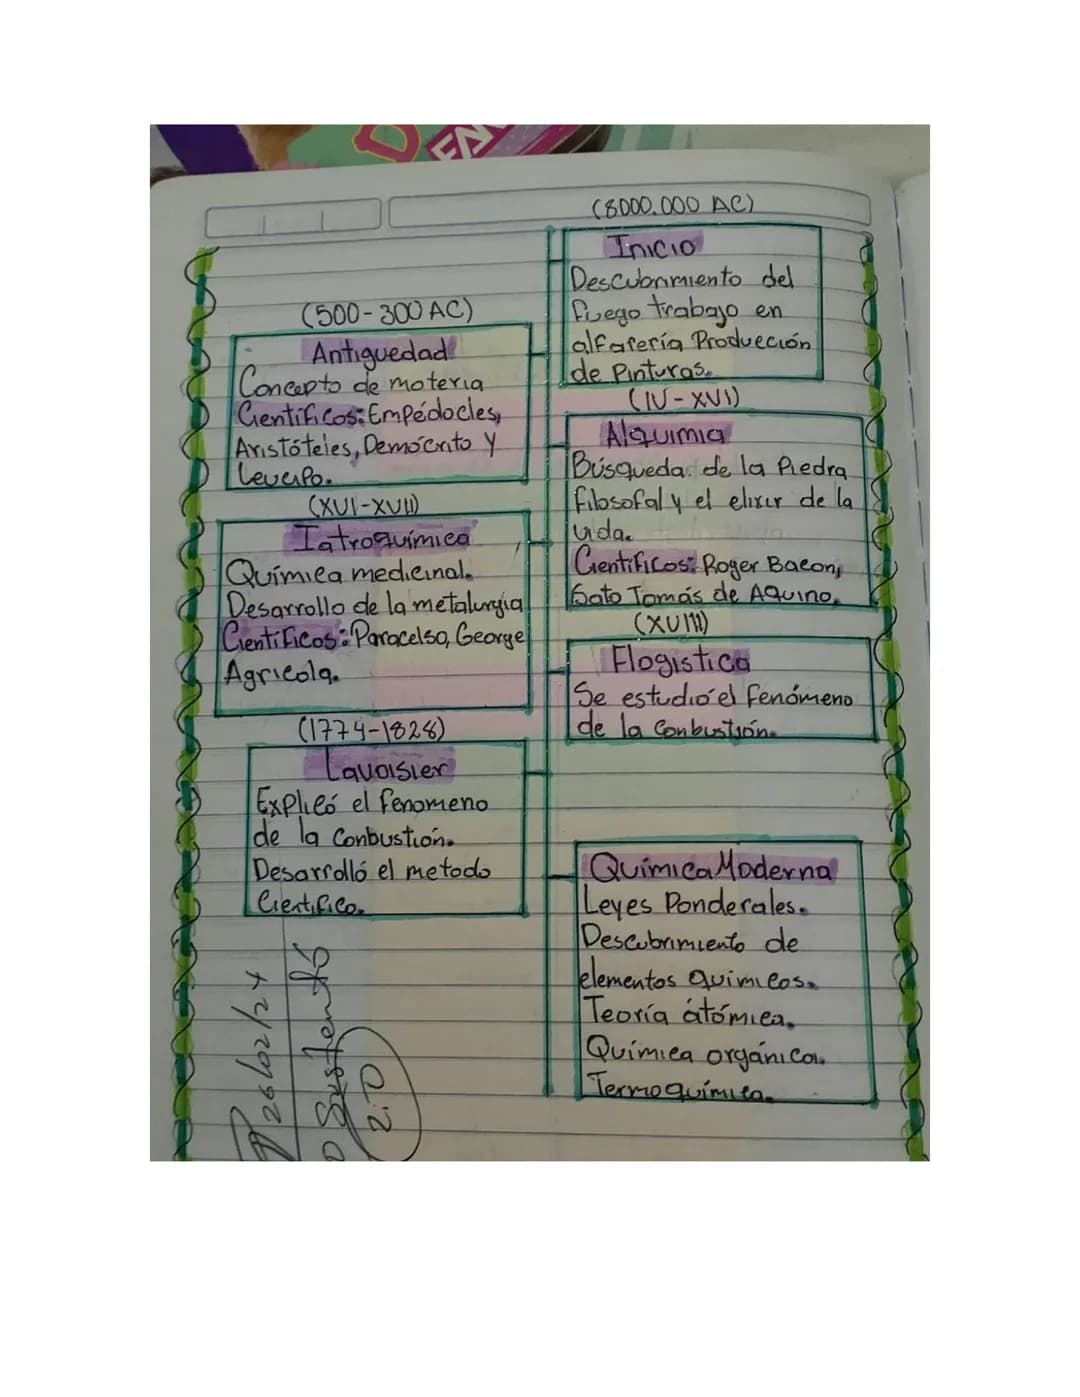 EN
(8000.000 AC)
Inicio
Descubrimiento del
fuego trabajo en
alfarería Producción
de Pinturas.
(500-300 AC)
Antiguedad
Concepto de materia
Científicos: Empédocles,
Aristóteles, Demócrito y
Leucipo.
(IV-XVI)
Alquimia
Búsqueda de la Piedra
filosofal y el elixir de la
vida.
Científicos: Roger Bacon,
Sato Tomás de Aquino.
(XVI-XVII)
Iatroquímica
Química medicinal.
Desarrollo de la metalurgia
Científicos: Paracelso, George
Agricola.
(XVIII)
Flogistica
Se estudió el fenómeno
de la Conbustión.
(1774-1828)
Lavoisier
Explicó el fenomeno
de la Conbustión.
Desarrolló el metodo
Cientifico.
Química Moderna
Leyes Ponderales.
Descubrimiento de
elementos químicos.
Teoría átómica.
Química orgánica.
Termoquímica.
26/02/24
2.0